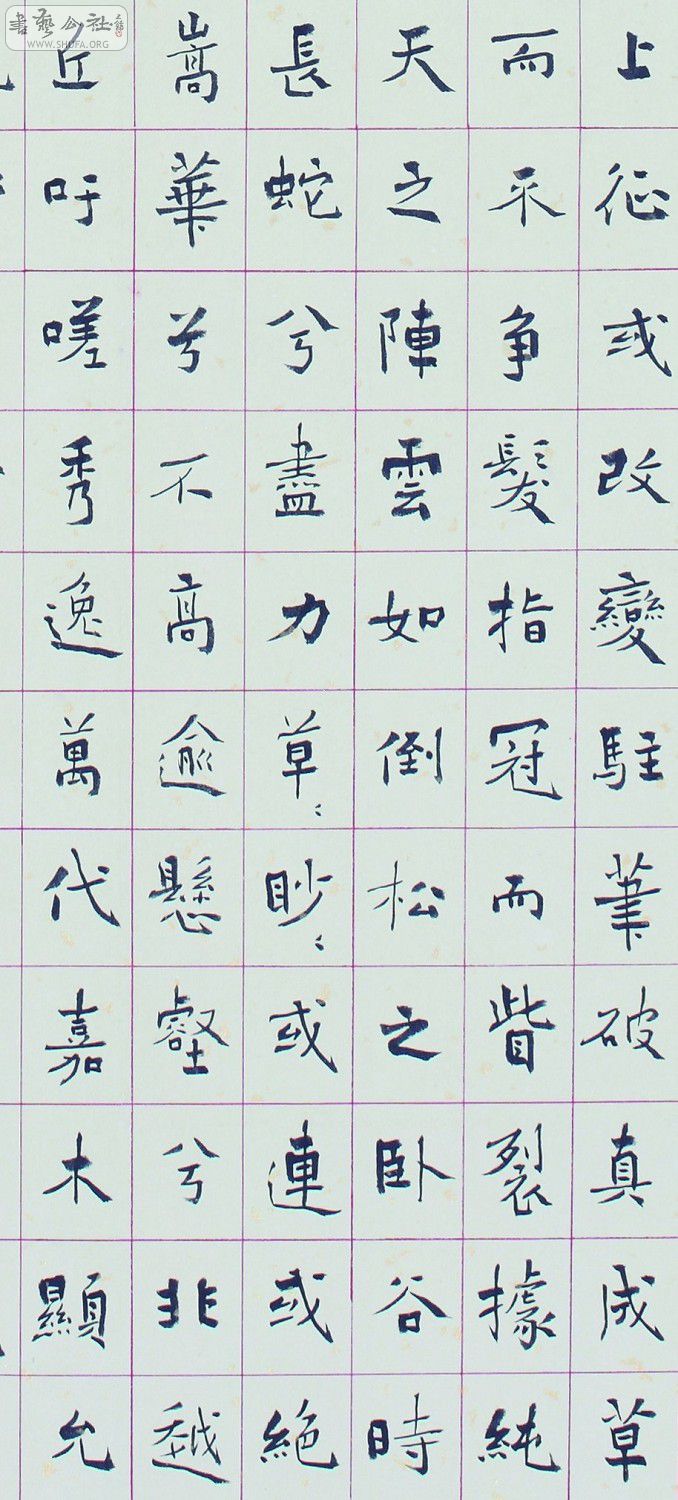 書藝公社
WWW.SHUFA.ORG
上征或改變駐筆破真成草
而争髮指冠而眥裂據純
天之陣雲如倒松之卧谷時
長蛇兮盡力草〻眇〻或連或絕
嵩華兮不高逾懸壑兮非越
丘吁嗟秀逸萬代嘉木顯允